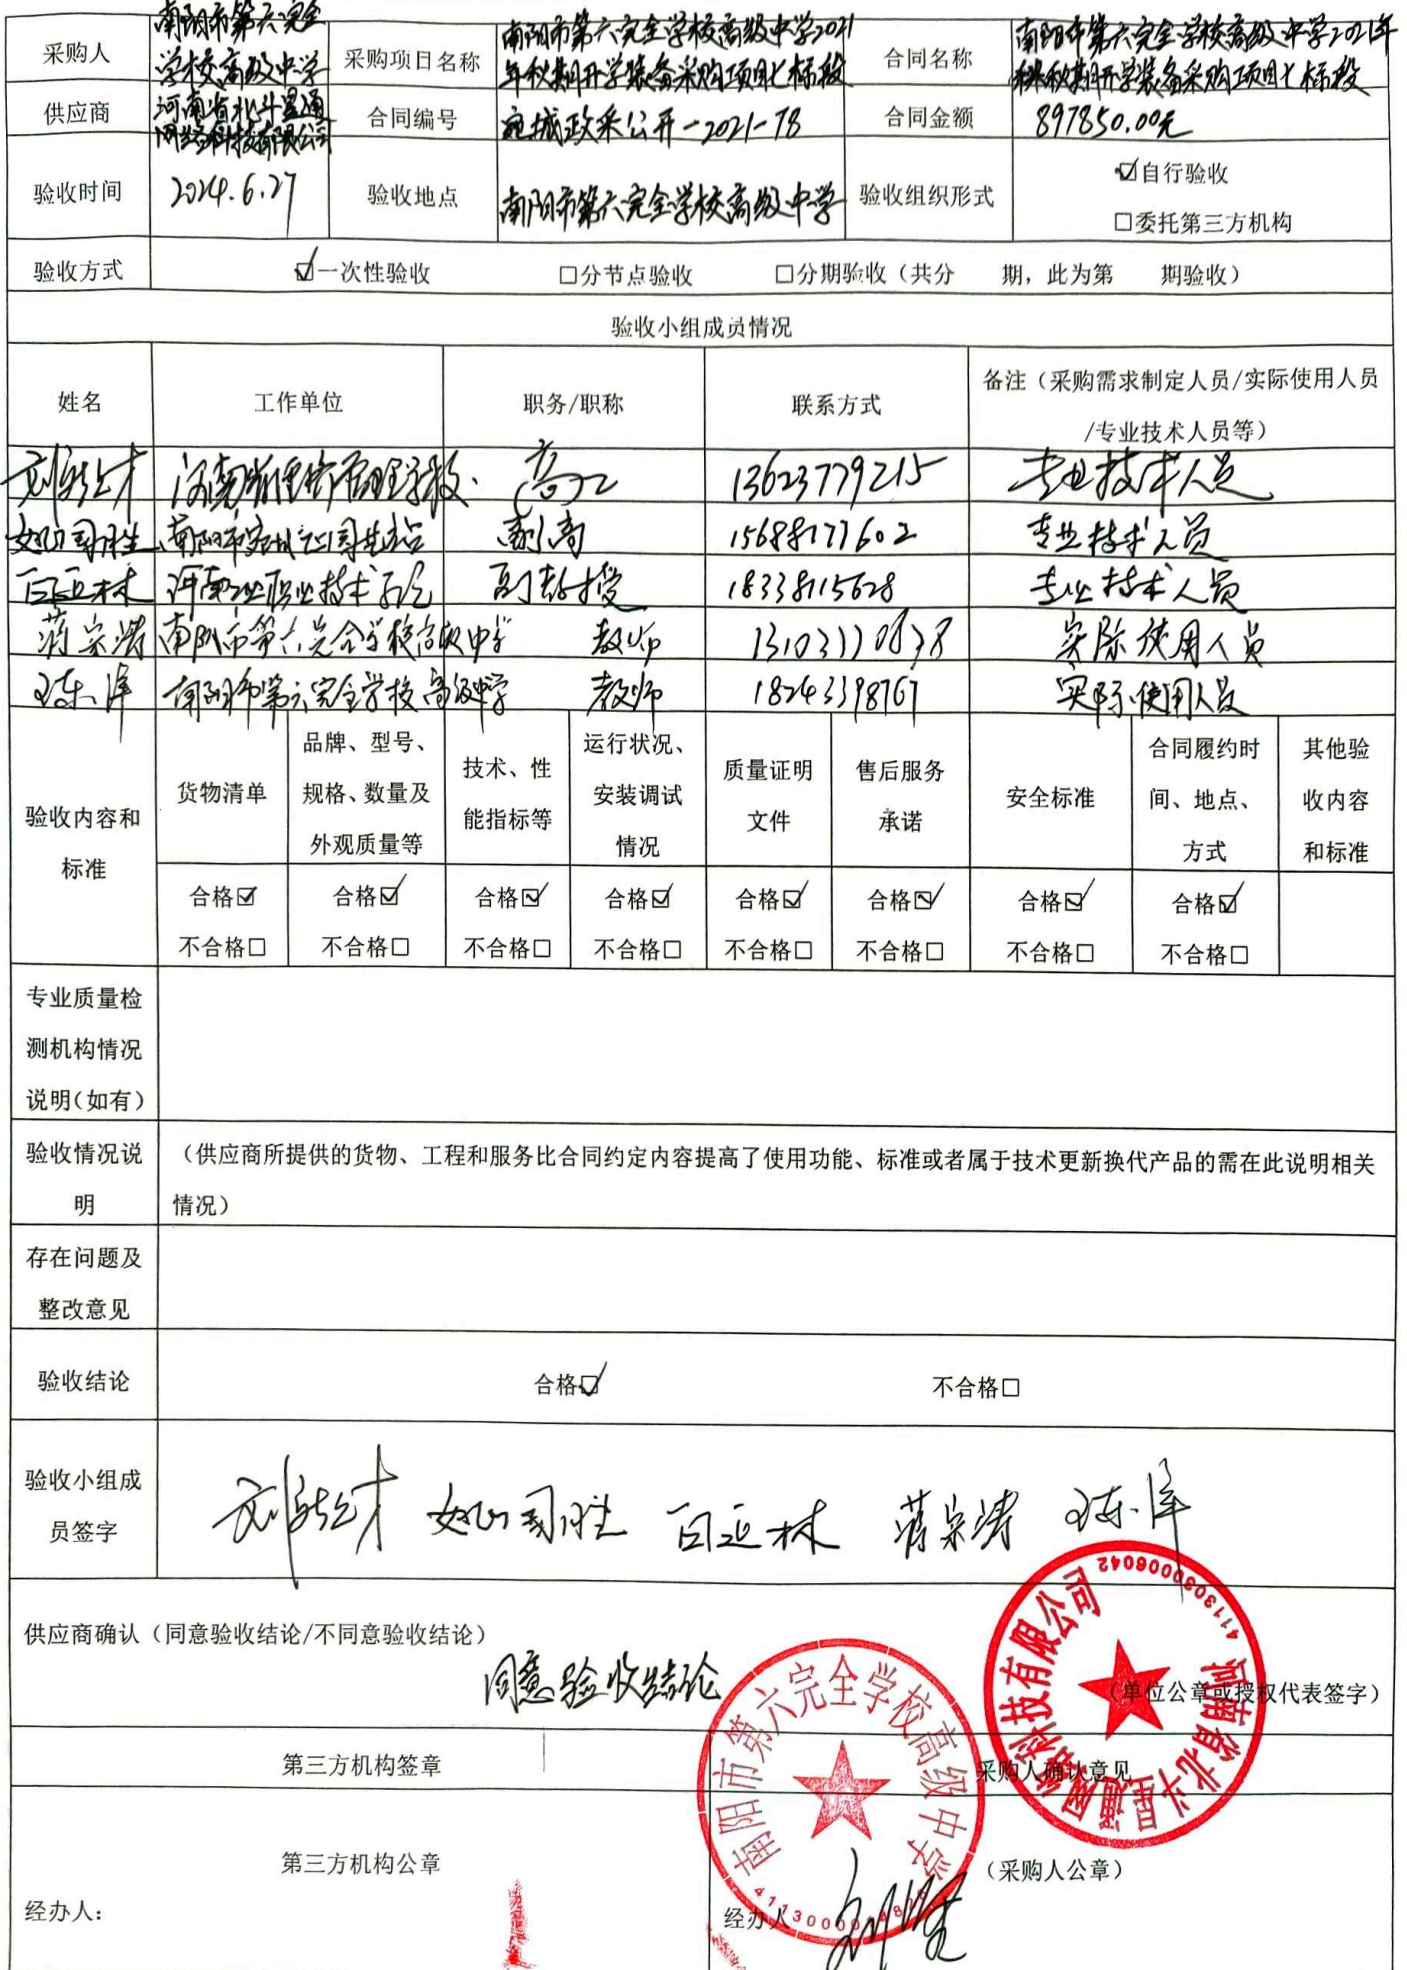 采购人
南阳市第六完全
学校高级中学
采购项目名称
南阳市第六完全学校高级中学2021
年秋期开学装备采购项目七标段
合同名称
南阳市第六完全学校高级中学2021年
秋期开学装备采购项目七标段
供应商
河南省北斗星通
网络科技有限公司
合同编号
宛城政采公开-2021-78
合同金额
897850.00元
验收时间
2024.6.27
验收地点
南阳市第六完全学校高级中学
验收组织形式
☑自行验收
□委托第三方机构
验收方式
☑一次性验收 □分节点验收 □分期验收（共分 期，此为第 期验收）
验收小组成员情况
姓名 工作单位 职务/职称 联系方式 备注（采购需求制定人员/实际使用人员
/专业技术人员等）
高工 13623779215 专业技术人员
副高 15688177602 专业技术人员
白延林 河南工业职业技术学院 副教授 18338115628 专业技术人员
蒋宗涛 南阳市第六完全学校高级中学 教师 实际使用人员
南阳市第六完全学校高级中学 教师 18243398767 实际使用人员
验收内容和
标准
货物清单
品牌、型号、
规格、数量及
外观质量等
技术、性
能指标等
运行状况、
安装调试
情况
质量证明
文件
售后服务
承诺
安全标准
合同履约时
间、地点、
方式
其他验
收内容
和标准
合格☑ 合格☑ 合格☑ 合格☑ 合格☑ 合格☑ 合格☑ 合格☑
不合格□ 不合格□ 不合格□ 不合格□ 不合格□ 不合格□ 不合格□ 不合格□
专业质量检
测机构情况
说明（如有）
验收情况说
明
（供应商所提供的货物、工程和服务比合同约定内容提高了使用功能、标准或者属于技术更新换代产品的需在此说明相关
情况）
存在问题及
整改意见
验收结论
合格☑ 不合格□
验收小组成
员签字
白延林 蒋宗涛
供应商确认（同意验收结论/不同意验收结论）
同意验收结论
（单位公章或授权代表签字）
河南省北斗星通网络科技有限公司
4113030006042
第三方机构签章
采购人确认意见
南阳市第六完全学校高级中学
第三方机构公章
（采购人公章）
经办人：
经办人